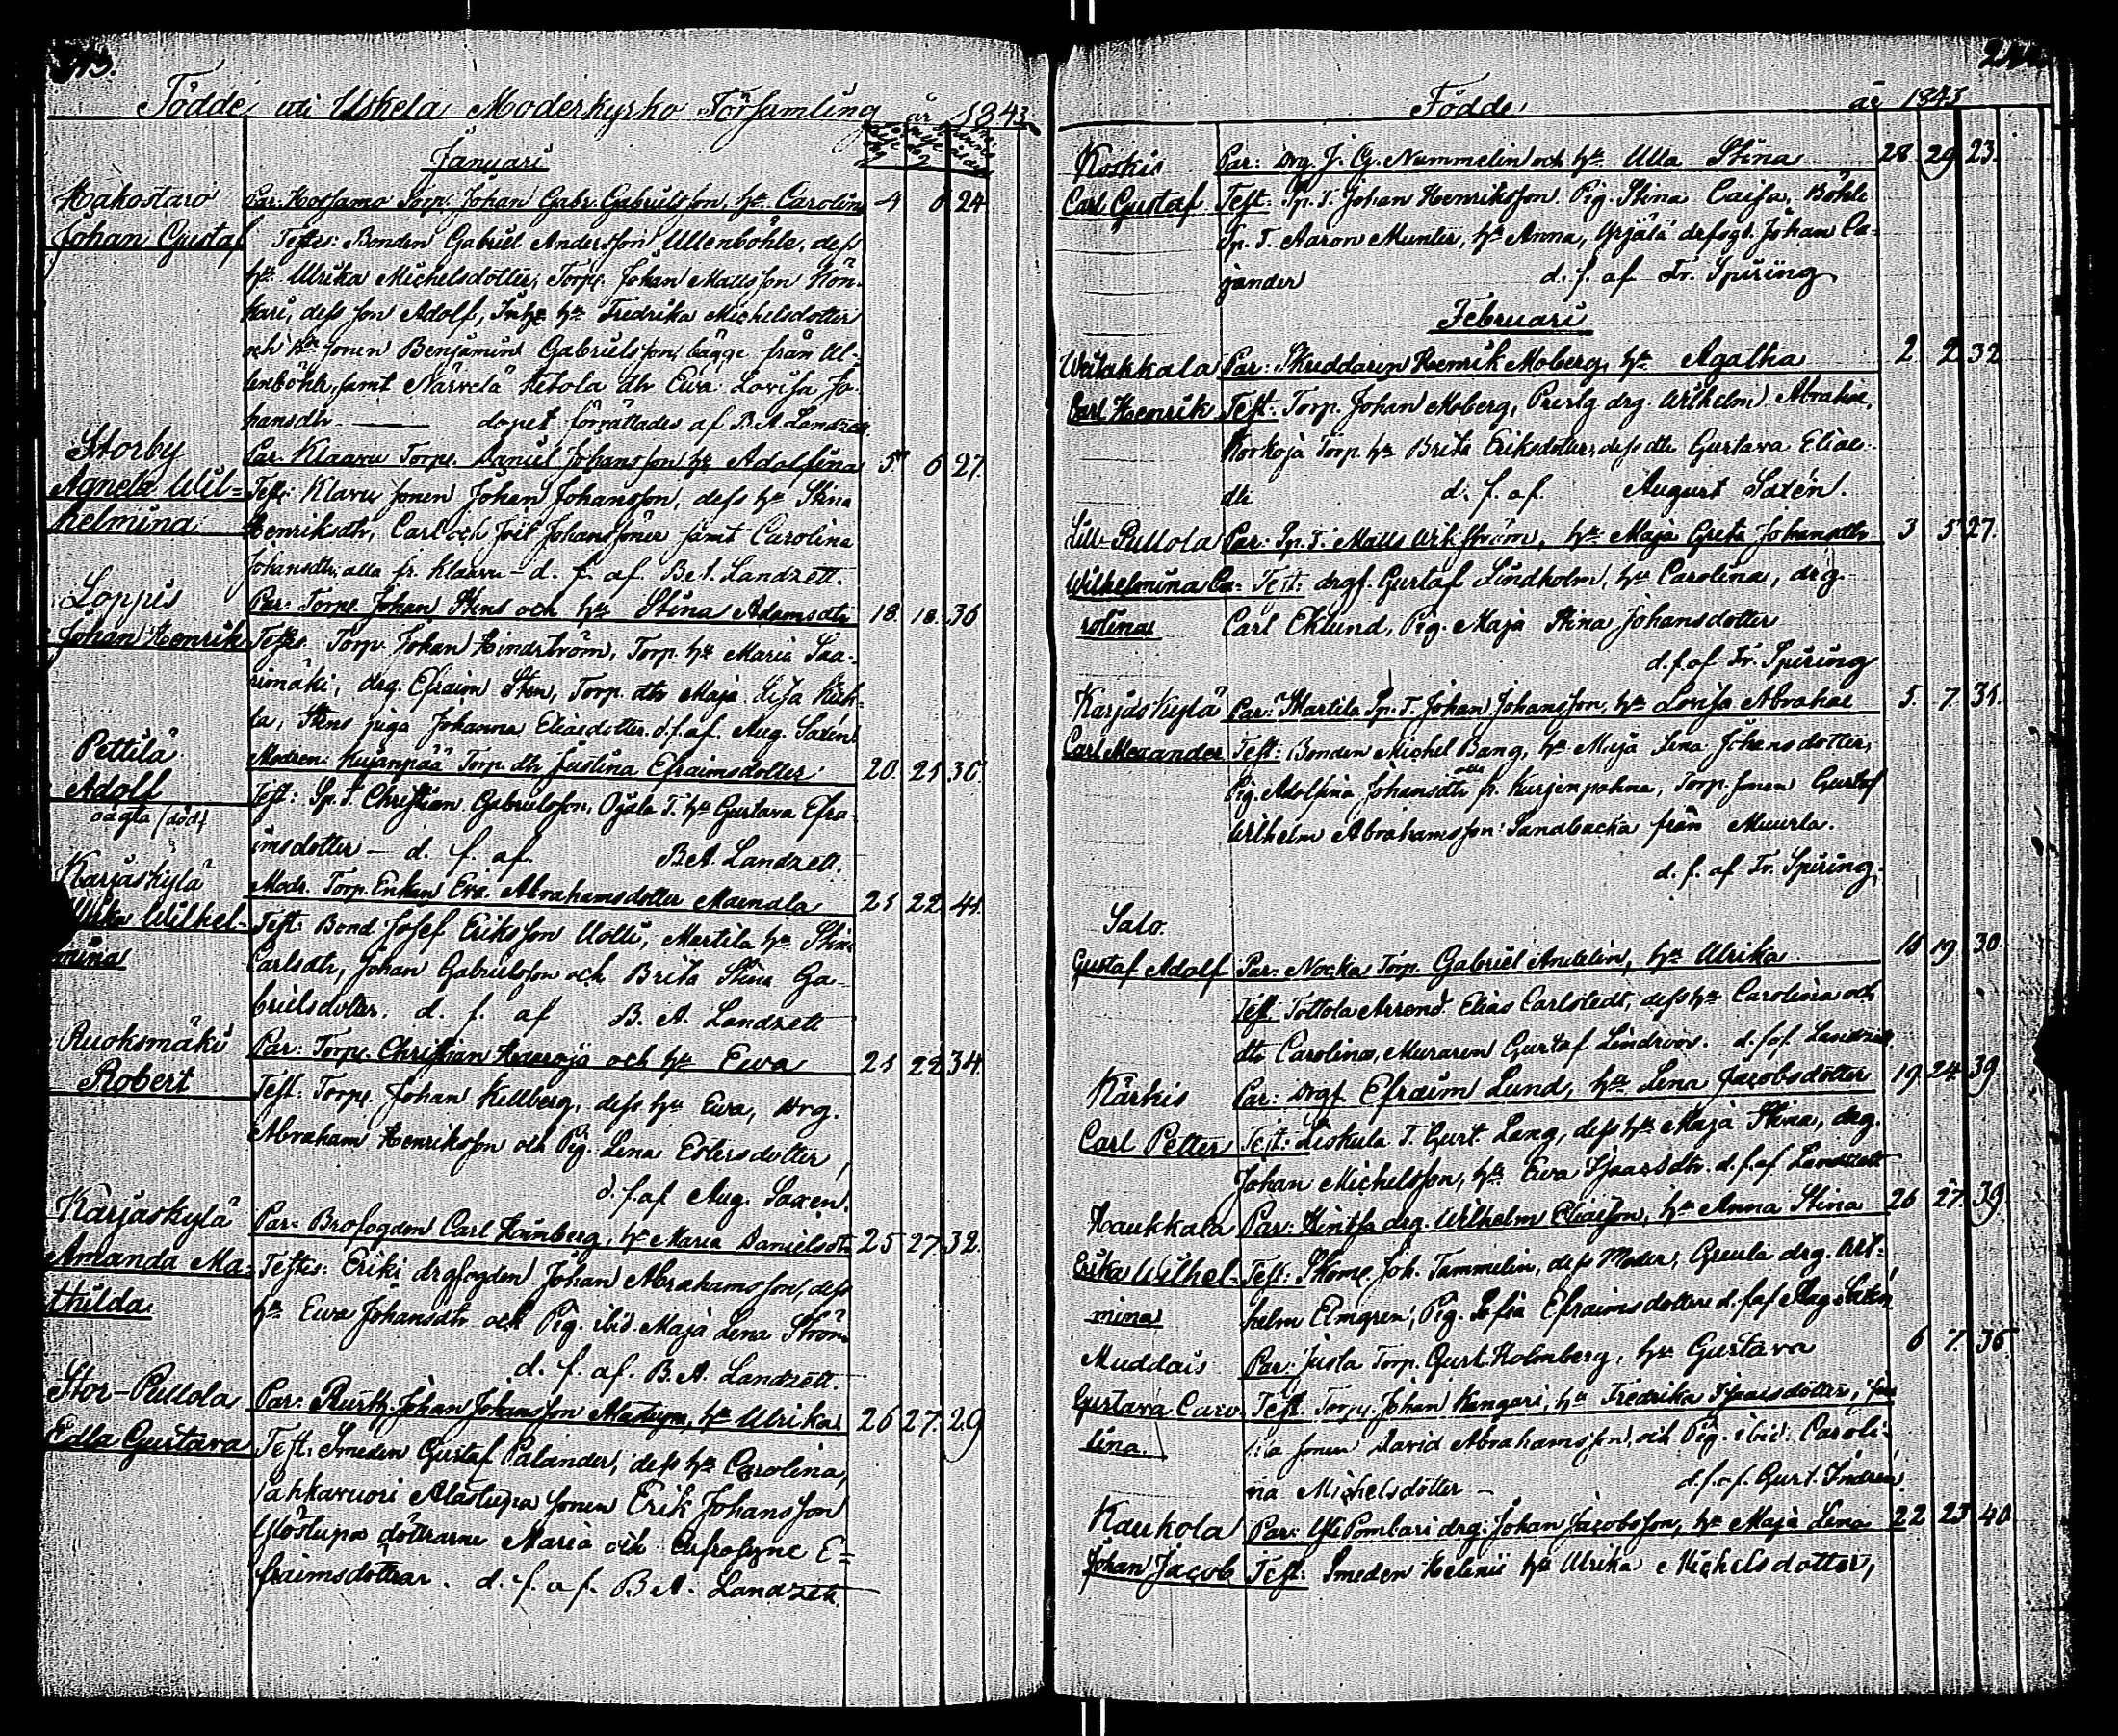 Födde uti Uskela Moderkyrko Församling år 1843
Januari
Hakostaro
Johan Gustaf
Par: Sjöp. Johan Gabr. Gabrielsson, h:u Carolina 4 6 24
Testes: Bonden Gabriel Andersson Ullenböhle, dess
h:u Ulrika Michelsdotter, Torp. Johan Mattsson Kön-
kari, dess son Adolf, h:u Fredrika Michelsdotter
och sonen Benjamin Gabrielsson, bägge från Ul-
lenböhle, samt Närvelä Hetola dtr Ewa Lovisa Jo-
hansdtr — dopet förrättades af B. A. Landzett.
Storby
Agneta Wil-
helmina
Par. Klaavu Torp. Daniel Johansson, h:u Adolfina 5 6 27.
Test: Klavu sonen Johan Johansson, dess h:u Stina
Henriksdtr, Carl och Joël Johanssöner samt Carolina
Johansdtr, alla fr. Klaavu — d. f. af. B. A. Landzett.
Loppis
Johan Henrik
Par: Torp. Johan Stens och h:u Stina Adamsdtr 18. 18. 36
Testes Torp. Johan Hindström, Torp. h:u Maria Saa-
rimäki, drg. Efraim Sten, Torp. dtr Maja Lisa Kuk-
la, Stens piga Johanna Eliasdotter. d. f. af. Aug. Saxén
Pettilä
Adolf
oägta (död)
Modren: Kujanpää Torp. dtr Justina Efraimsdotter 20. 21 36.
Test: Sp. T. Christian Gabrielsson, Ojala T. h:u Gustava Efra-
imsdotter — d. f. af. B. A. Landzett.
Karjaskylä
Ulrika Wilhel-
mina
Modr. Torp. Enkan Eva Abrahamsdotter Mainala 21 22 41.
Test: Bond. Josef Eriksson Uotti, Martila h:u Stina
Carlsdtr, Johan Gabrielsson och Brita Stina Ga-
brielsdotter. d. f. af B. A. Landzett
Ruoksmäki
Robert
Par: Torp. Christian och h:u Ewa 21 22 34.
Test: Torp. Johan Kellberg, dess h:u Ewa, Drg.
Abraham Henriksson och Pig. Lena
d. f. af Aug. Saxen.
Karjaskylä
Amanda Ma-
thilda
Par: Brofogden Carl Heimberg, h:u Maria Danielsdtr 25 27. 32.
Testis: Eriki drgfogden Johan Abrahamsson, dess
h:u Ewa Johansdtr och Pig. ibid Maja Lena Ström
d. f. af. B. A. Landzett.
Stor-Pullola
Edla Gustava
Par: Rusth. Johan Johansson Alastupa, h:u Ulrika 26 27. 29
Test: Smeden Gustaf Palander, dess h:u Carolina,
ahkavuori Alastupa sonen Erik Johansson
Ylöstupa döttrarne Maria och Eufrosyne E-
fraimsdöttrar. d. f. af. B. A. Landzett.
Födde år 1843
Koskis
Carl Gustaf
Par: Drg. J. G. Nummelin och h:u Ulla Stina 28 29 23.
Test: Sp. T. Johan Henriksson. Pig. Stina Caisa, Böhle
Sp. T. Aaron Munter, h:u Anna, Yrjälä Johan Ca-
jander d. f. af Fr. Spiring
Februari
Watakkala
Carl Henrik
Par: Skreddaren Henrik Moberg, h:u Agatha 2 2 32
Test: Torp. Johan Moberg, drg. Wilhelm Abrahae,
Korkoja Torp. h:u Brita Eriksdotter, dess dtr Gustava Eliae
dtr d. f. af. August Saxén.
Lill-Pullola
Wilhelmina Ca-
rolina
Par: Sp. T. Matts Wikström, h:u Maja Greta Johansdtr 3 5 27.
Test: drgf. Gustaf Lindholm, h:u Carolina, drg.
Carl Eklund, Pig. Maja Stina Johansdotter
d. f. af Fr. Spiring
Karjaskylä
Carl Alexander
Par: Martila Sp. T. Johan Johansson, h:u Lovisa Abrahae 5. 7. 31.
Test: Bonden Michel Bang, h:u Maja Lena Johansdotter,
Pig. Adolfina Johansdtr fr. Kurjenpahna, Torp. sonen Gustaf
Wilhelm Abrahamsson Sandbacka från Muurla.
d. f. af Fr. Spiring.
Salo.
Gustaf Adolf
Par: Nocka Torp. Gabriel Andelin, h:u Ulrika 16 19. 30.
Test. Tottola Arrend. Elias Carlstedt, dess h:u Carolina och
dtr Carolina, Muraren Gustaf Lindroos. d. f. af. Landzett.
Kärkis
Carl Petter
Par: Drgf. Efraim Lund, h:u Lena Jacobsdotter 19. 24 39
Test: Liskula T. Gust. Lang, dess h:u Maja Stina, drg.
Johan Michelsson, h:u Ewa Isaacsdtr. d. f. af Landzett
Haukkala
Erika Wilhel-
mina
Par: Hintsa drg. Wilhelm Eliaeson, h:u Anna Stina 26 27. 39.
Test: Skom. Joh. Tammelin, dess Moder, drg. Wil-
helm Elmgren, Pig. Sofia Efraimsdotter. d. f. af Aug. Saxén.
Muddais
Gustava Caro-
lina.
Par: Jusla Torp. Gust. Holmberg, h:u Gustava 6 7. 36.
Test. Torp. Johan Kangari, h:u Fredrika Isaaisdotter,
sonen David Abrahamsson, och Pig. ibid. Caroli-
na Michelsdotter — d. f. af. Gust. Indrén.
Kaukola
Johan Jacob
Par: Yli Pombari drg. Johan Jacobsson, h:u Maja Lena 22 23 40.
Test: Smeden Helenii h:u Ulrika Michelsdotter,